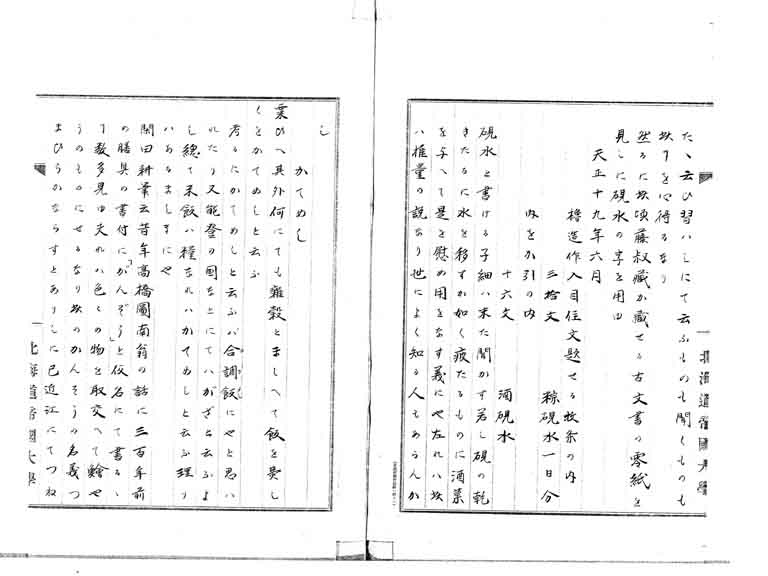 たゝ云ひ習ハしにて云ふものも聞くものも
然るに此頃藤叔蔵か蔵せる古文書の零紙を
見しに硯水の字を用ゆ
天正十九年六月
椿造作入目住文題せる牧条の内
三拾文　粽硯水一日分
内をか引の内
十六文　酒硯水
硯水と書ける子細ハ未た聞かす若し硯の乾
きたるに水を移すか如く疲たるものに酒菓
を与へて是を慰め用をなす義にや左れハ此
ハ推量の説なり世によく知る人もあらんか
し
かてめし
葉ひへ其外何にても雑穀とましへて飯を炊し
くとかてめしと云ふ
考るにかてめしと云ふハ合調飯にやと思ハ
れたり又能登の国なとにてハがぎと云ふよ
し総て米飯ハ糧なれハかてめしと云ふ理り
ハあるましきにや
閑田耕筆云昔年高橋図南翁の話に三百年前
の膳具の書付に「がんぞう」と仮名にて書る
て数多見ゆ夫れハ色くの物を取交へて鱠や
うのものにせるなり此のかんそうの名義つ
まひらかならすとありしに已近江にてつね
北海道帝国大学
北海道帝国大学